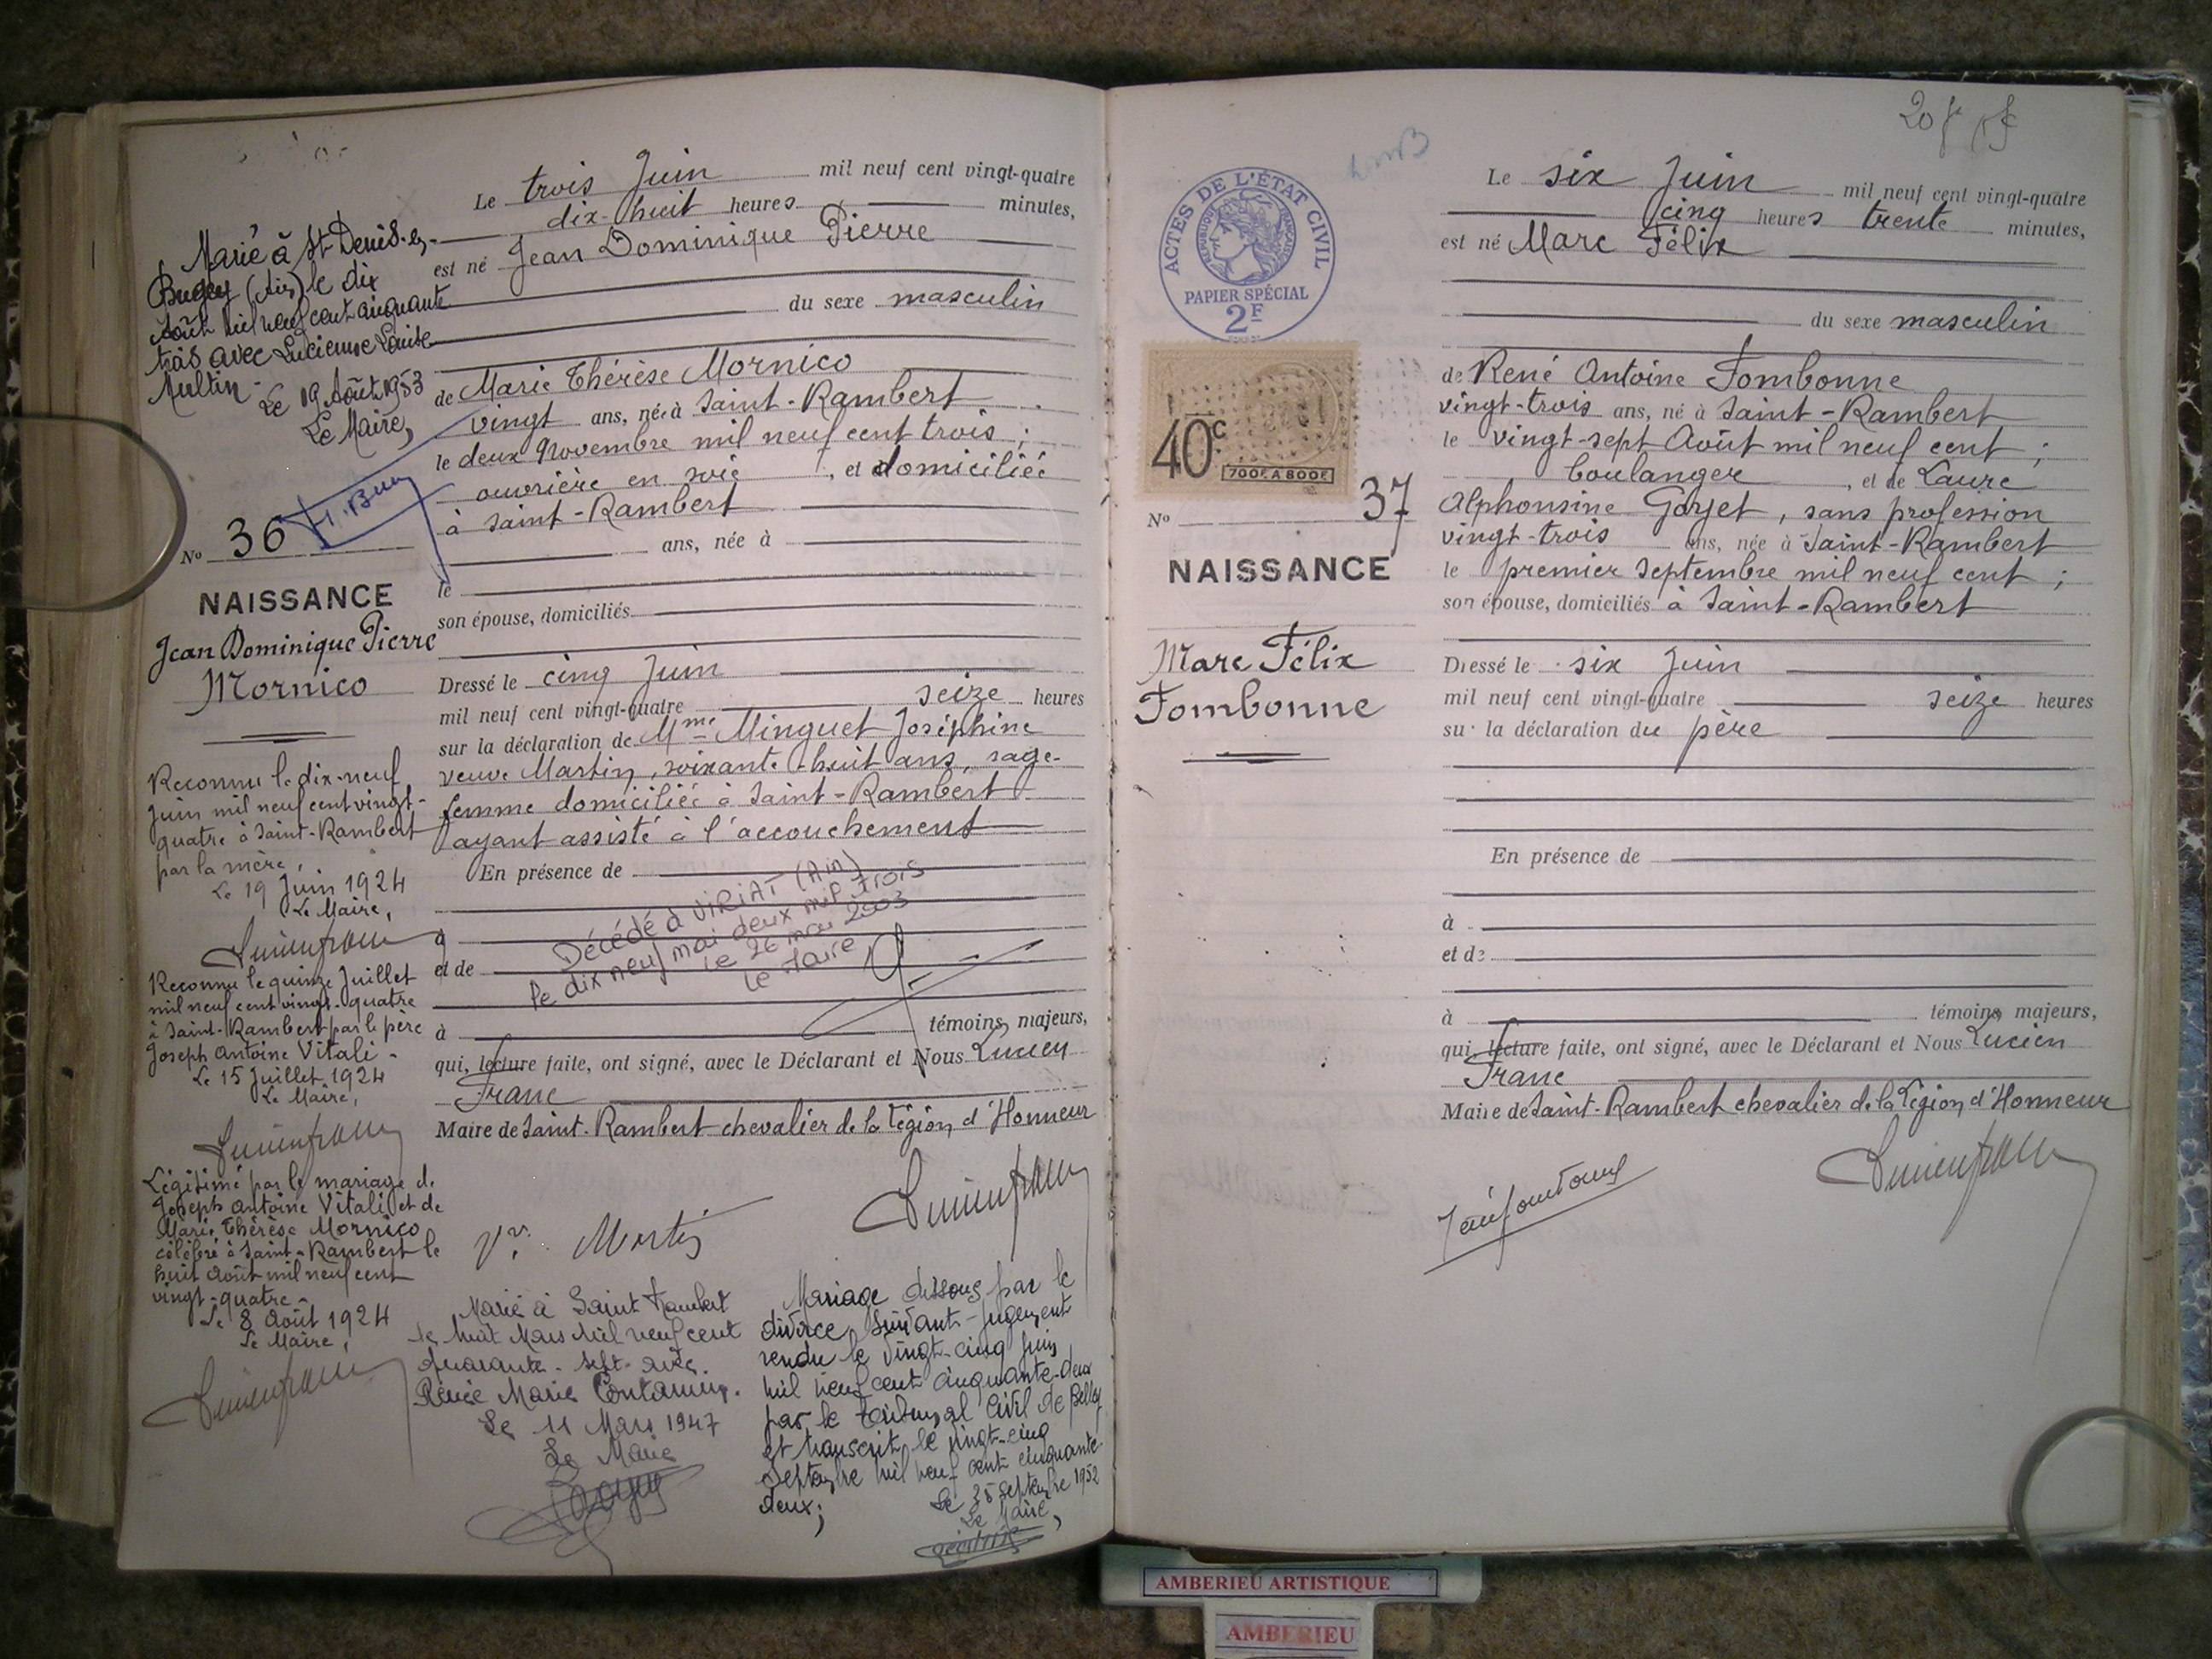 Marié à St Denis-en-
Bugey (Ain) le dix
Août mil neuf cent cinquante
trois avec Lucienne Louise
Le 19 Août 1953
Le Maire,
No 36
NAISSANCE
Jean Dominique Pierre
Mornico
Reconnu le dix-neuf
Juin mil neuf cent vingt-
quatre à Saint-Rambert
par la mère,
Le 19 Juin 1924
Le Maire,
Reconnu le quinze Juillet
mil neuf cent vingt-quatre
à Saint-Rambert par le père
Joseph Antoine Vitali -
Le 15 Juillet 1924
Le Maire,
Légitimé par le mariage de
Joseph Antoine Vitali et de
Marie Thérèse Mornico
célébré à Saint-Rambert le
huit Août mil neuf cent
vingt-quatre -
Le 8 Août 1924
Le Maire,
Le trois Juin mil neuf cent vingt-quatre
dix-huit heures minutes,
est né Jean Dominique Pierre
du sexe masculin
de Marie Thérèse Mornico
vingt ans, née à Saint-Rambert
le deux Novembre mil neuf cent trois ;
ouvrière en soie , et domiciliée
à Saint-Rambert
ans, née à
le
son épouse, domiciliés
Dressé le cinq Juin
mil neuf cent vingt-quatre seize heures
sur la déclaration de Mme Minguet Joséphine
veuve Martin, soixante-huit ans, sage-
femme domiciliée à Saint-Rambert
ayant assisté à l'accouchement
En présence de
Décédé à VIRIAT (Ain)
le dix neuf mai deux mil trois
le 26 mai 2003
Le Maire
à
et de
à témoins majeurs,
qui, lecture faite, ont signé, avec le Déclarant et Nous Lucien
Franc
Maire de Saint-Rambert chevalier de la Légion d'Honneur
Vve Martin
Marié à Saint Rambert
le huit Mars mil neuf cent
quarante-sept avec
Renée Marie Contamin.
Le 11 Mars 1947
Le Maire
Mariage dissous par le
divorce suivant jugement
rendu le vingt-cinq Juin
mil neuf cent cinquante-deux
par le tribunal civil de Belley
et transcrit le vingt-cinq
Septembre mil neuf cent cinquante-
deux ;
Le 25 Septembre 1952
Le Maire,
ACTES DE L'ÉTAT CIVIL
PAPIER SPÉCIAL
2F
40c
700F. A 800F.
No 37
NAISSANCE
Marc Félix
Fombonne
Le six Juin mil neuf cent vingt-quatre
cinq heures trente minutes,
est né Marc Félix
du sexe masculin
de René Antoine Fombonne
vingt-trois ans, né à Saint-Rambert
le vingt-sept Août mil neuf cent ;
boulanger , et de Laure
Alphonsine Gorjet, sans profession
vingt-trois ans, née à Saint-Rambert
le premier Septembre mil neuf cent ;
son épouse, domiciliés à Saint-Rambert
Dressé le six Juin
mil neuf cent vingt-quatre seize heures
sur la déclaration du père
En présence de
à
et de
à témoins majeurs,
qui, lecture faite, ont signé, avec le Déclarant et Nous Lucien
Franc
Maire de Saint-Rambert chevalier de la Légion d'Honneur
AMBERIEU ARTISTIQUE
AMBERIEU